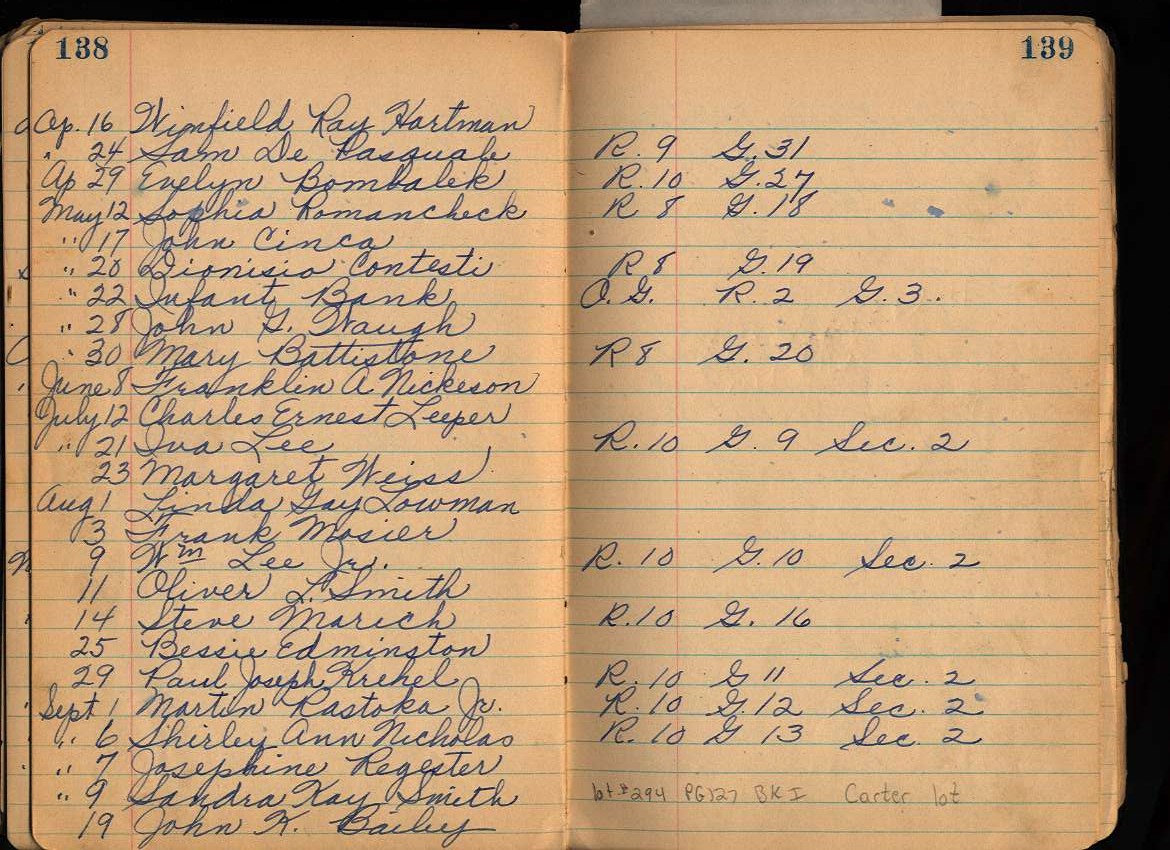 138 139
Ap. 16 Winfield Ray Hartman
" 24 Sam De Pasquale R. 9 G. 31
Ap 29 Evelyn Bombalek R. 10 G. 27
May 12 Sophia Romancheck R 8 G. 18
" 17 John Cinca
" 20 Dionisio Contesti R 8 G. 19
" 22 Infant Bank O. G. R. 2 G. 3.
" 28 John G. Waugh
" 30 Mary Battistone R 8 G. 20
June 8 Franklin A. Nickeson
July 12 Charles Ernest Leeper
" 21 Iva Lee R. 10 G. 9 Sec. 2
23 Margaret Weiss
Aug 1 Linda Gay Lowman
3 Frank Mosier
9 Wm Lee Jr. R. 10 G. 10 Sec. 2
11 Oliver L. Smith
14 Steve Marich R. 10 G. 16
25 Bessie Edminston
29 Paul Joseph Krehel R. 10 G 11 Sec. 2
Sept 1 Martin Kastoka Jr. R. 10 G. 12 Sec. 2
" 6 Shirley Ann Nicholas R. 10 G 13 Sec. 2
" 7 Josephine Regester
" 9 Sandra Kay Smith lot #294 PG 127 BK I Carter lot
19 John K. Bailey